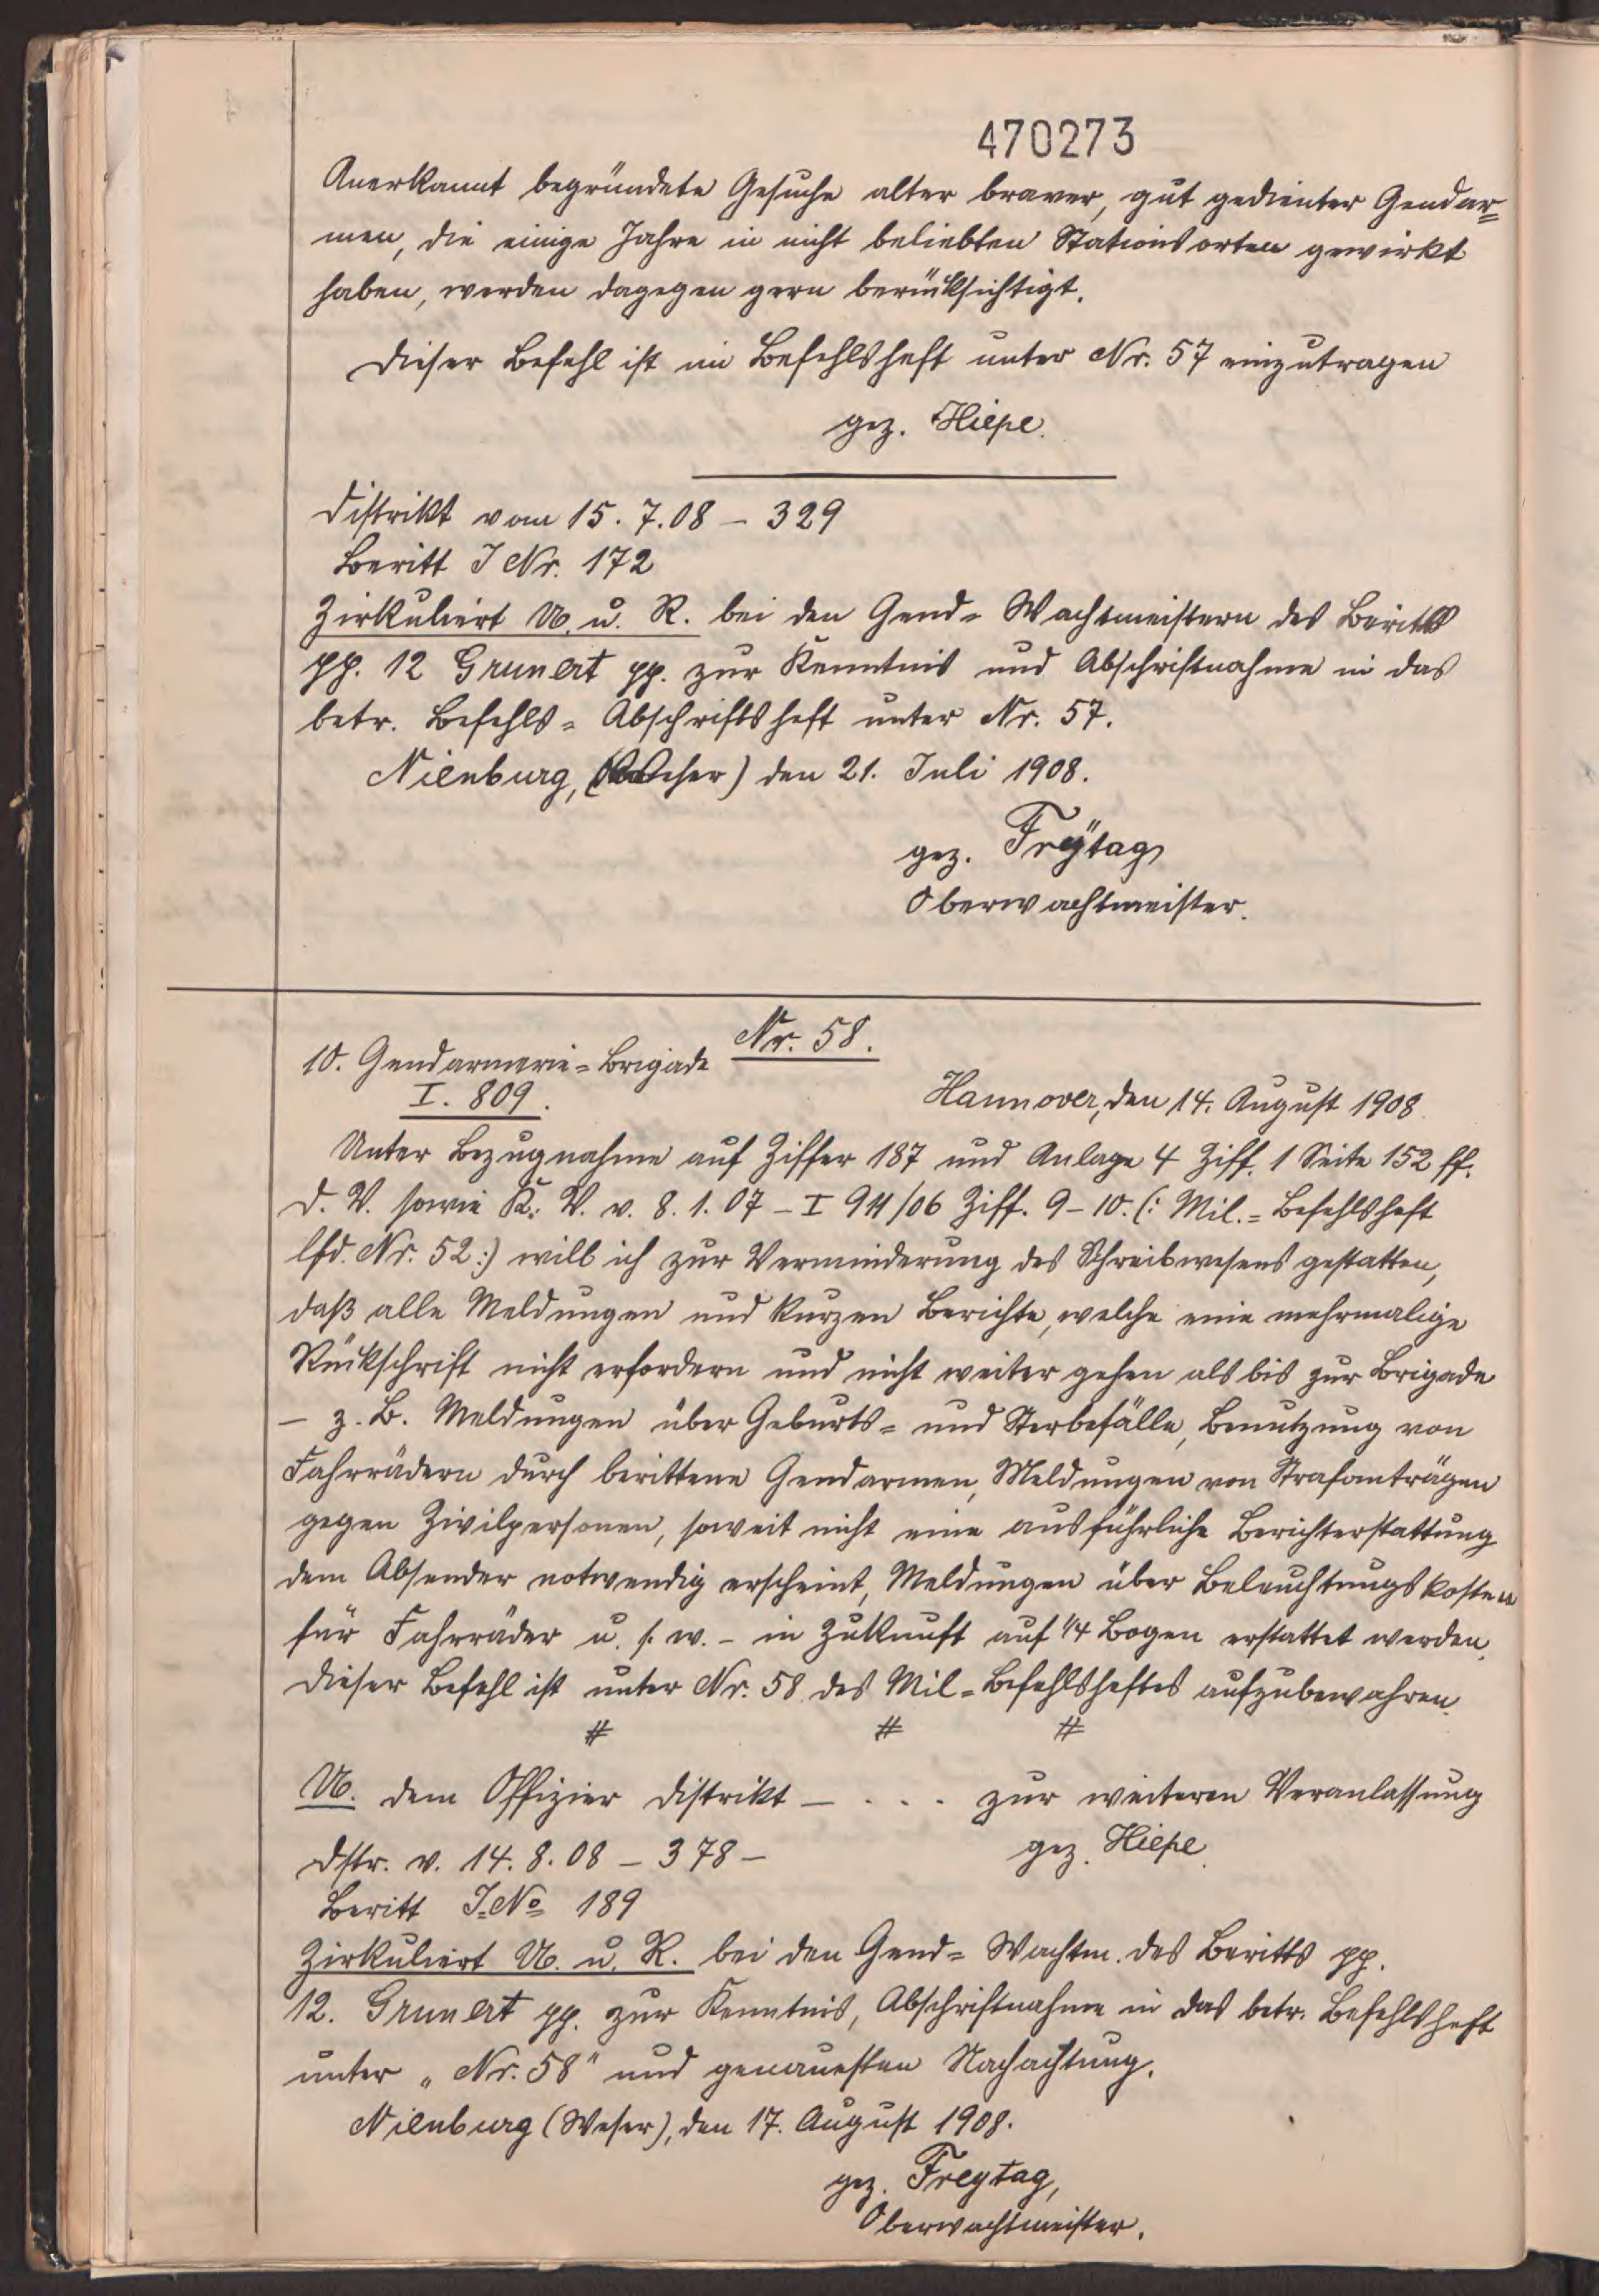 470273
Anerkannt begründete Gesuche alter braver, gut gedienter Gendar=
men, die einige Jahre in nicht beliebten Stationsorten gewirkt
haben, werden dagegen gern berücksichtigt.
Dieser Befehl ist im Befehlsheft unter Nr. 57 einzutragen
gez. Hiepe.
Distrikt vom 15.7.08 – 329
Beritt J Nr. 172
Zirkuliert U. u. R. bei den Gend= Wachtmeistern des Beritts
pp. 12 Grunert pp. zur Kenntnis und Abschriftnahme in das
betr. Befehls= Abschriftsheft unter Nr. 57.
Nienburg, den 21. Juli 1908.
gez. Freÿtag
Oberwachtmeister.
Nr. 58.
10. Gendarmerie=Brigade
I. 809.
Hannover, den 14. August 1908.
Unter Bezugnahme auf Ziffer 187 und Anlage 4 Ziff. 1 Seite 152 ff.
D. V. sowie K. V. v. 8.1.07 – I 911/06 Ziff. 9–10. (: Mil.=Befehlsheft
lfd. Nr. 52:) will ich zur Verminderung des Schreibwesens gestatten,
daß alle Meldungen und kurzen Berichte, welche eine mehrmalige
Rückschrift nicht erfordern und nicht weiter gehen als bis zur Brigade
– z. B. Meldungen über Geburts= und Sterbefälle, Benutzung von
Fahrrädern durch berittene Gendarmen, Meldungen von Strafanträgen
gegen Zivilpersonen, soweit nicht eine ausführliche Berichterstattung
dem Absender notwendig erscheint, Meldungen über Beleuchtungskosten
für Fahrräder u. s. w. – in Zukunft auf 1/4 Bogen erstattet werden.
Dieser Befehl ist unter Nr. 58 des Mil=Befehlsheftes aufzubewahren.
# # #
U. dem Offizier Distrikt – . . . zur weiteren Veranlassung
gez. Hiepe.
Dstr. v. 14.8.08 – 378 –
Beritt J.No 189
Zirkuliert U. u. R. bei den Gend= Wachtm. des Beritts pp.
12. Grunert pp. zur Kenntnis, Abschriftnahme in das betr. Befehlsheft
unter „Nr. 58" und genauesten Nachachtung.
Nienburg (Weser), den 17. August 1908.
gez. Freytag,
Oberwachtmeister.